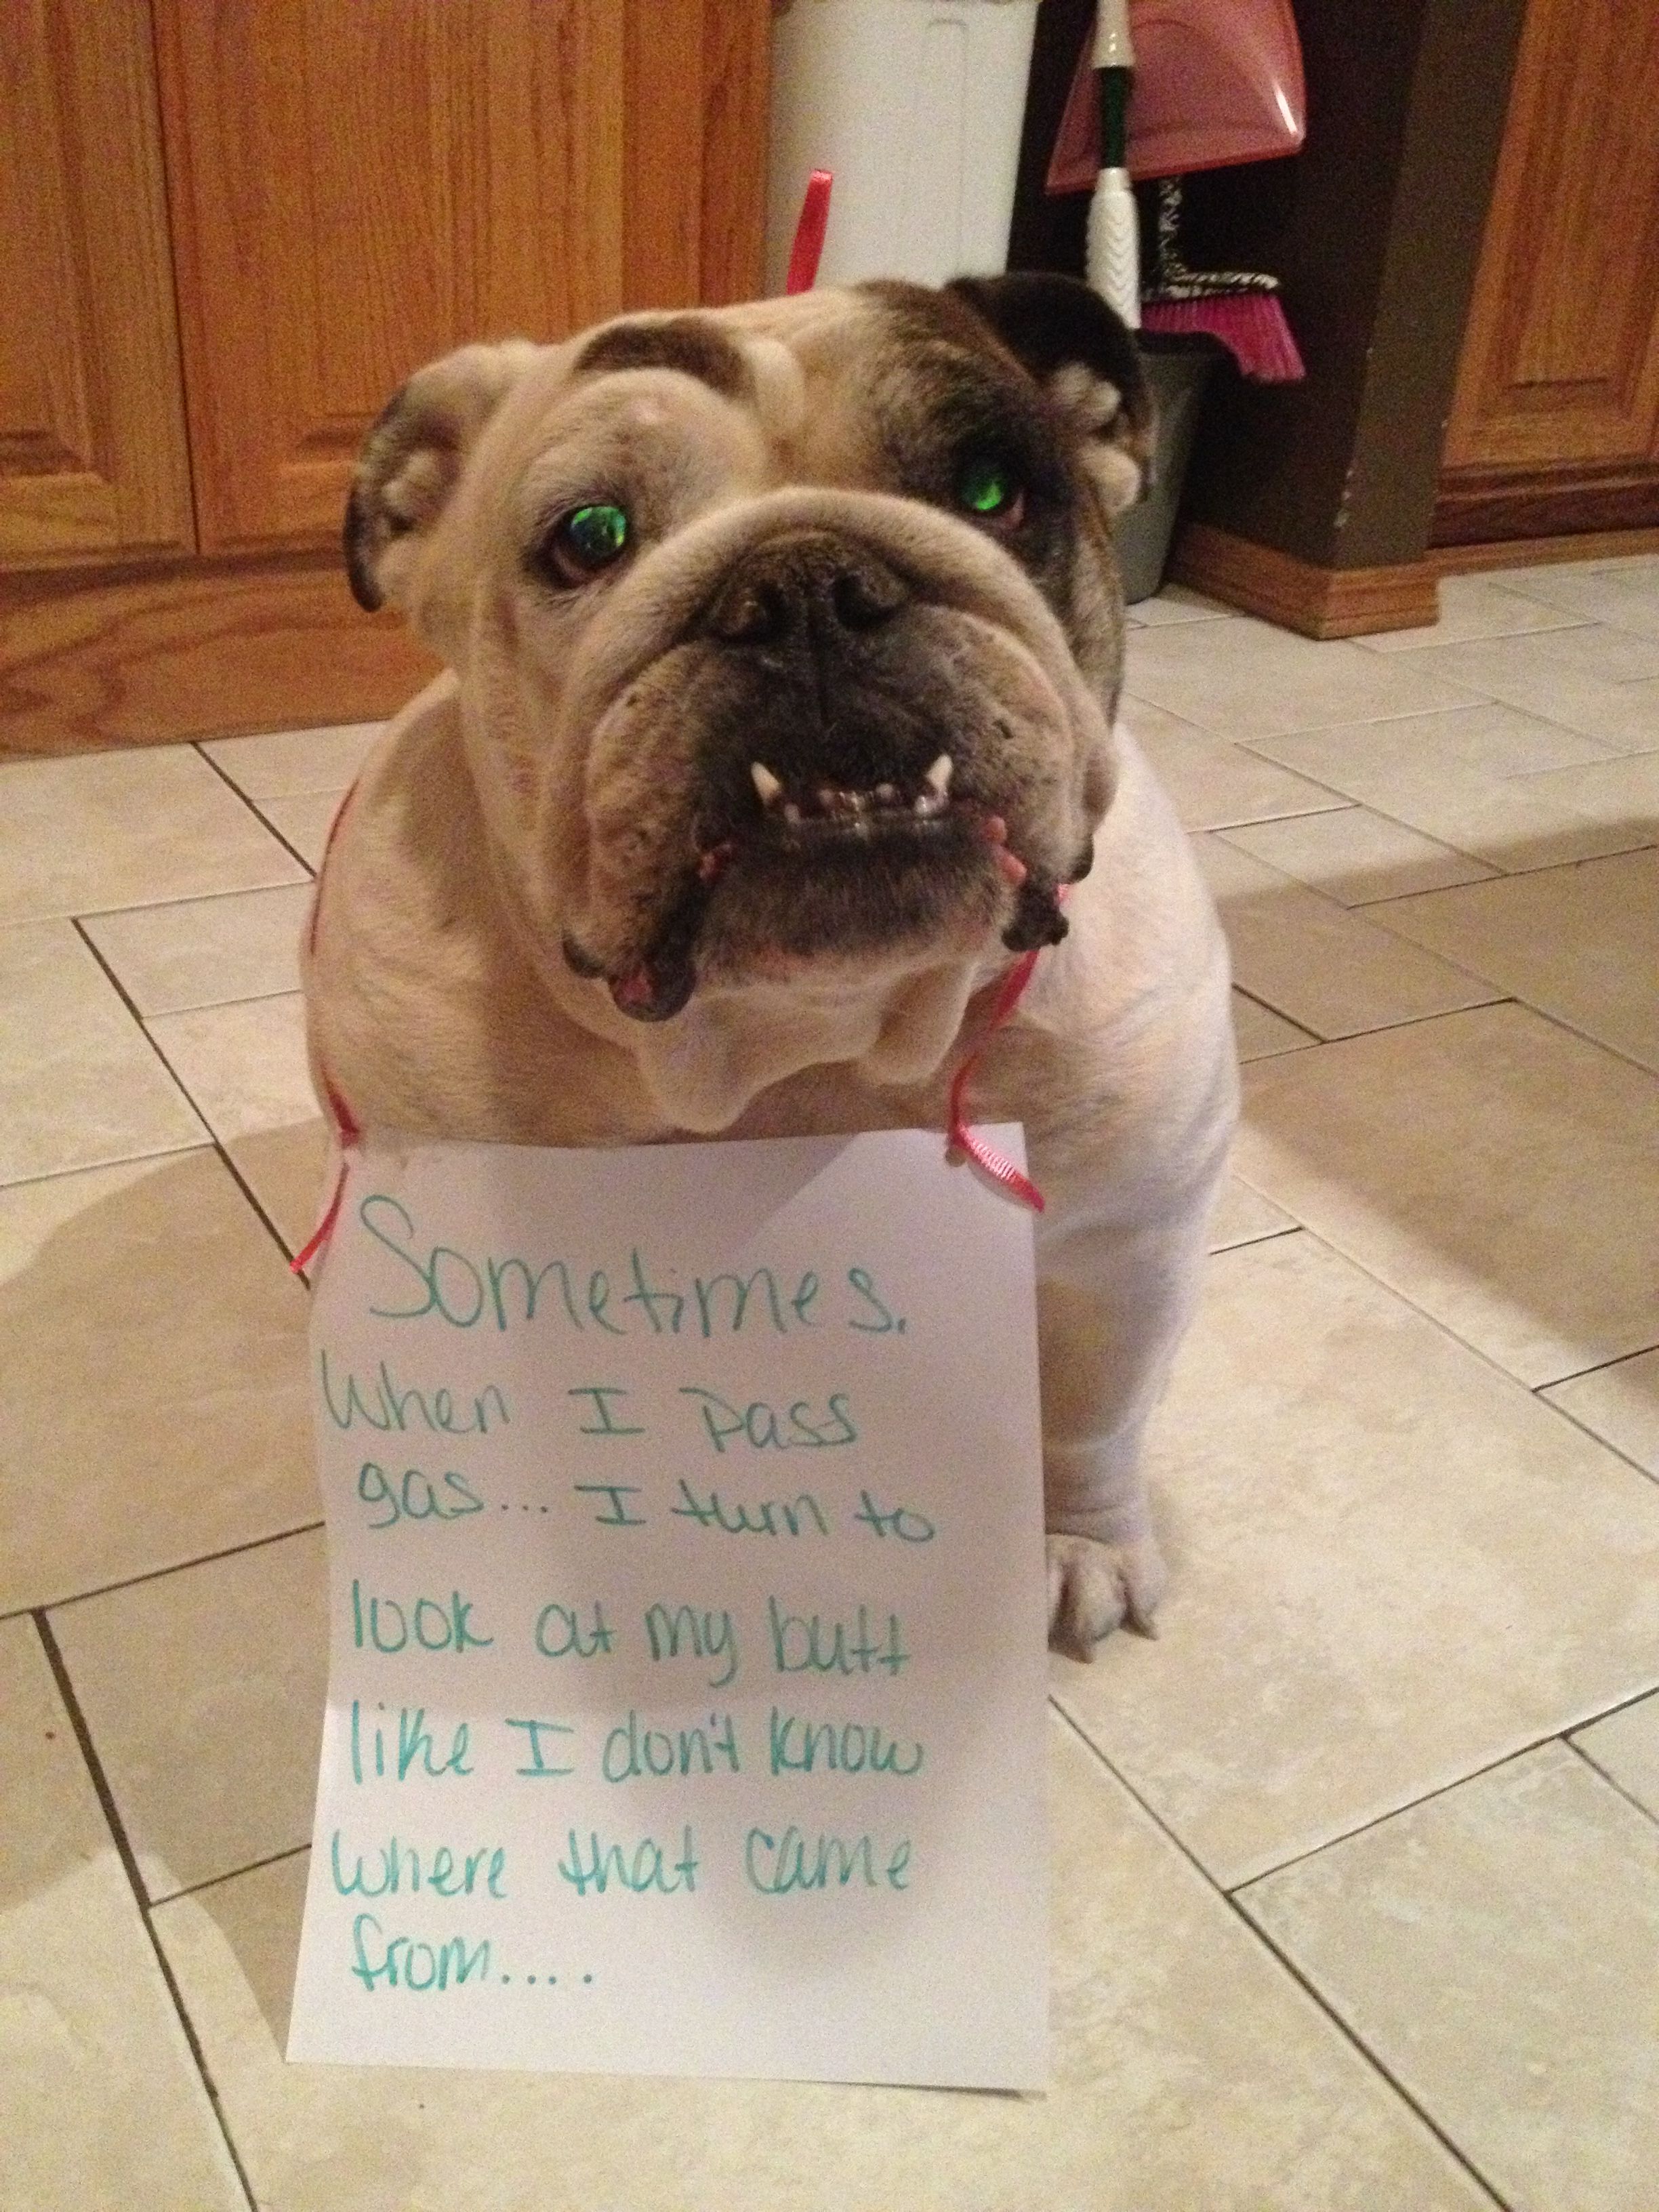 Sometimes.
When I pass
gas... I turn to
look at my butt
like I don't know
where that came
from....